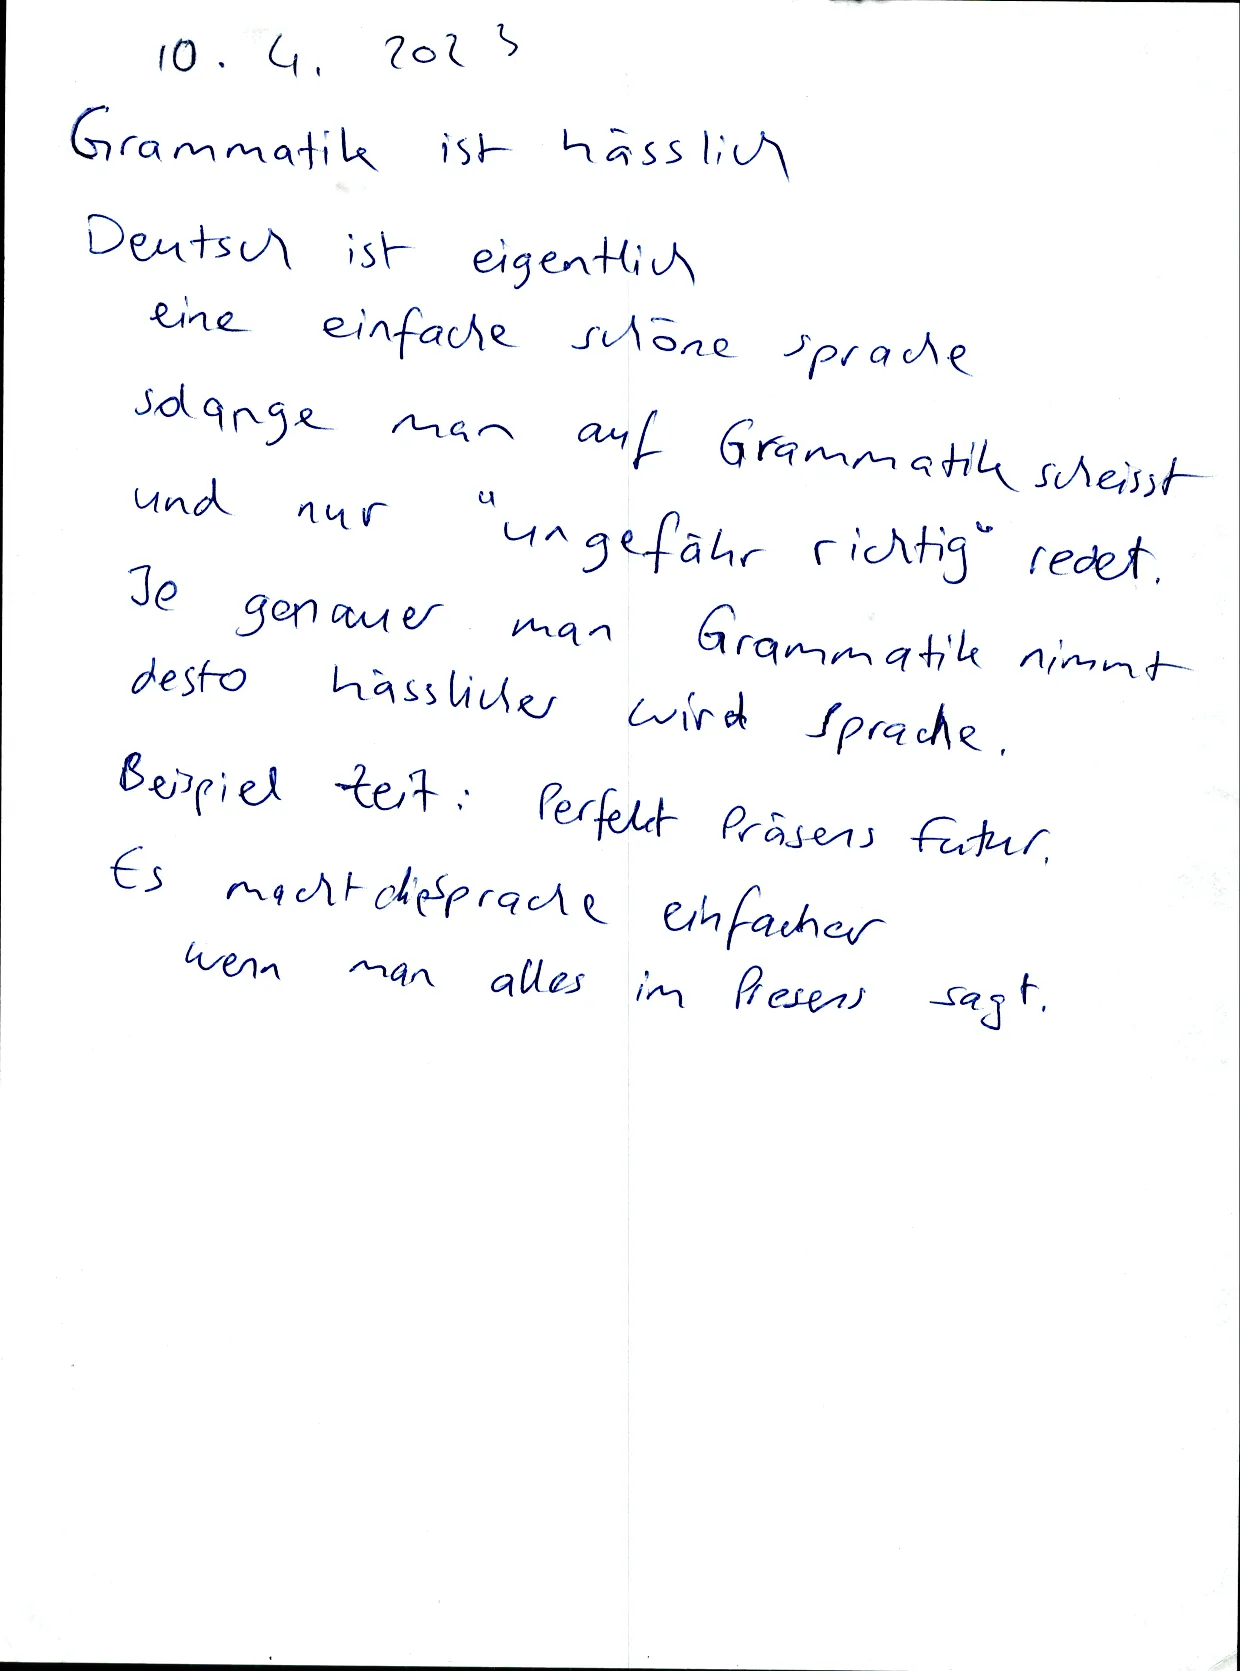 10. 4. 2023
Grammatik ist hässlich
Deutsch ist eigentlich
eine einfache schöne sprache
solange man auf Grammatik scheisst
und nur "ungefähr richtig" redet.
Je genauer man Grammatik nimmt
desto hässlicher wird Sprache.
Beispiel Zeit: Perfekt Präsens Futur.
Es macht die Sprache einfacher
wenn man alles im Presens sagt.